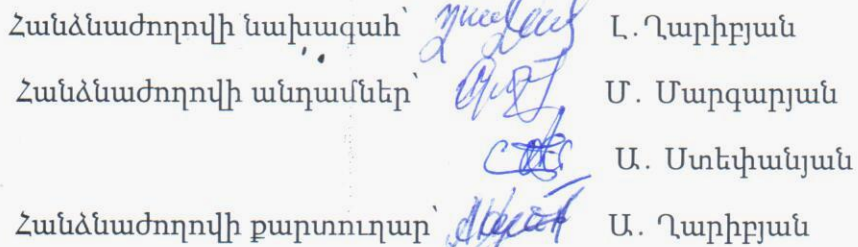 Հանձնաժողովի նախագահ՝ Լ.Ղարիբյան
Հանձնաժողովի անդամներ՝ Մ. Մարգարյան
Ա. Ստեփանյան
Հանձնաժողովի քարտուղար՝ Ա. Ղարիբյան